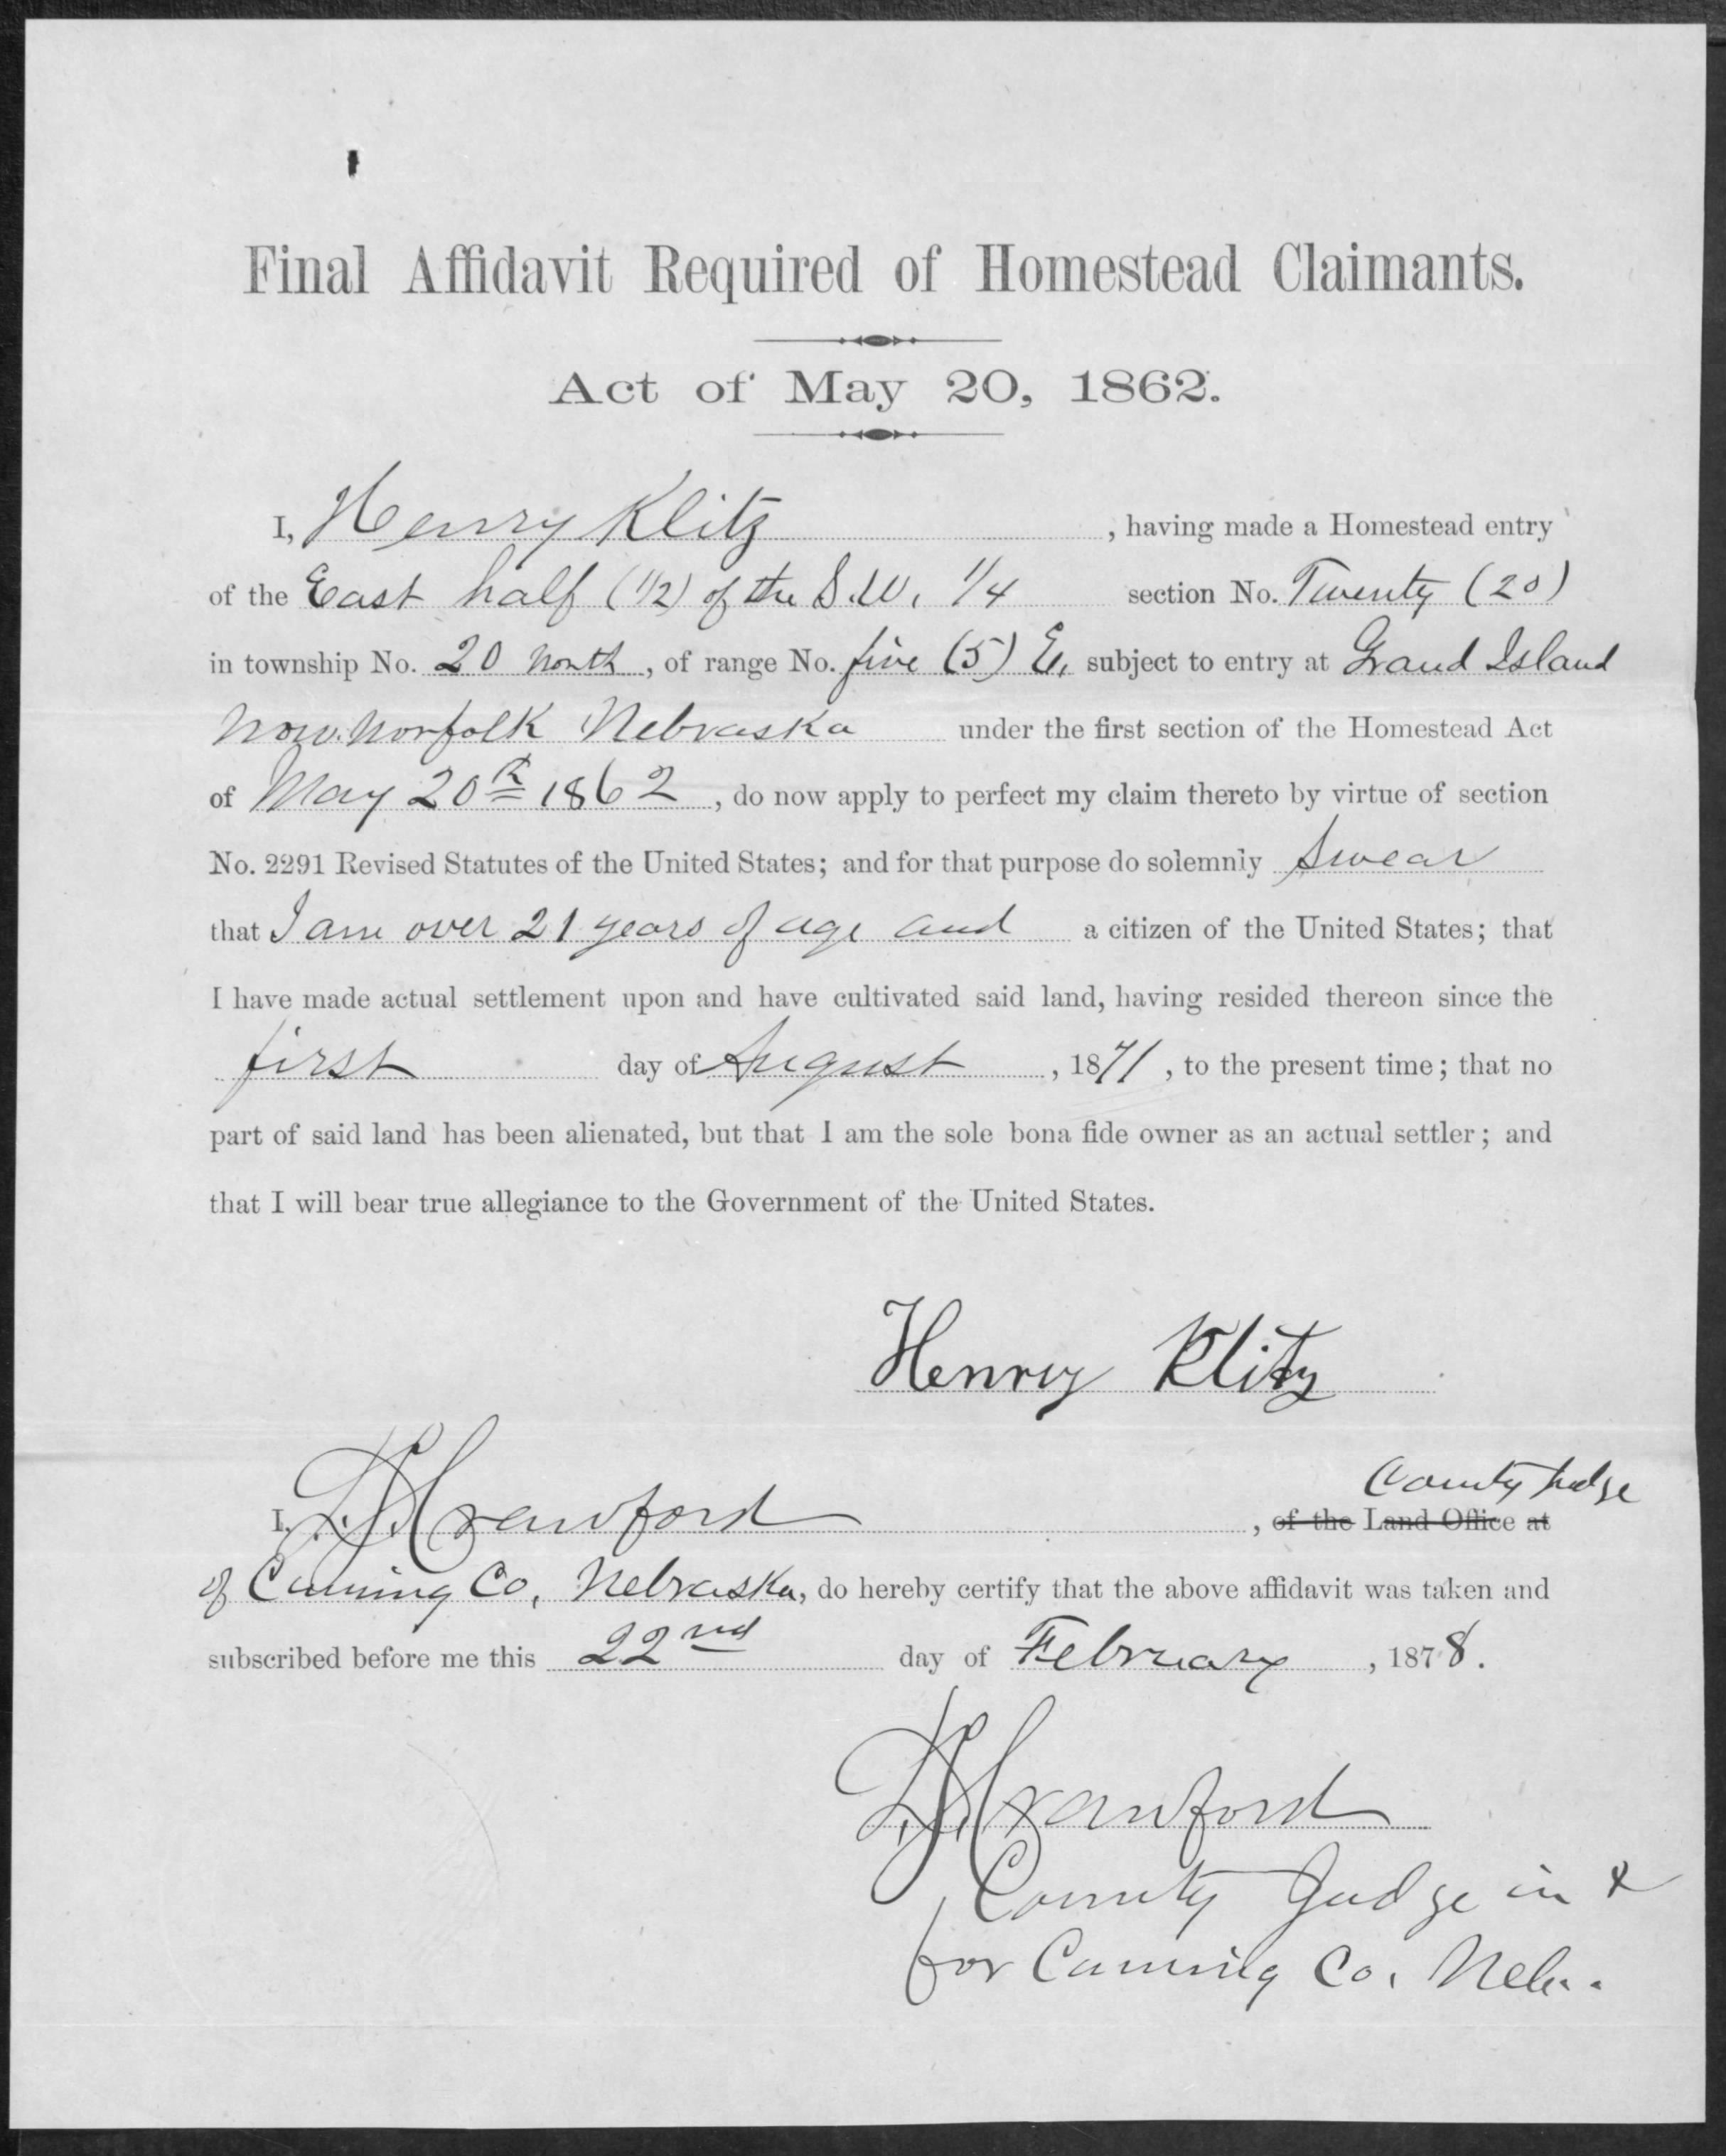 Final Affidavit Required of Homestead Claimants.
Act of May 20, 1862.
I, Henry Klitz, having made a Homestead entry
of the East half (1/2) of the S.W. 1/4 section No. Twenty (20)
in township No. 20 North, of range No. five (5) E, subject to entry at Grand Island
now Norfolk Nebraska under the first section of the Homestead Act
of May 20th 1862, do now apply to perfect my claim thereto by virtue of section
No. 2291 Revised Statutes of the United States; and for that purpose do solemnly Swear
that I am over 21 years of age and a citizen of the United States; that
I have made actual settlement upon and have cultivated said land, having resided thereon since the
first day of August, 1871, to the present time; that no
part of said land has been alienated, but that I am the sole bona fide owner as an actual settler; and
that I will bear true allegiance to the Government of the United States.
Henry Klitz
County Judge
I, Crawford, of the Land Office at
of Cuming Co, Nebraska, do hereby certify that the above affidavit was taken and
subscribed before me this 22nd day of February, 1878.
Crawford
County Judge in &
for Cuming Co. Nebr.